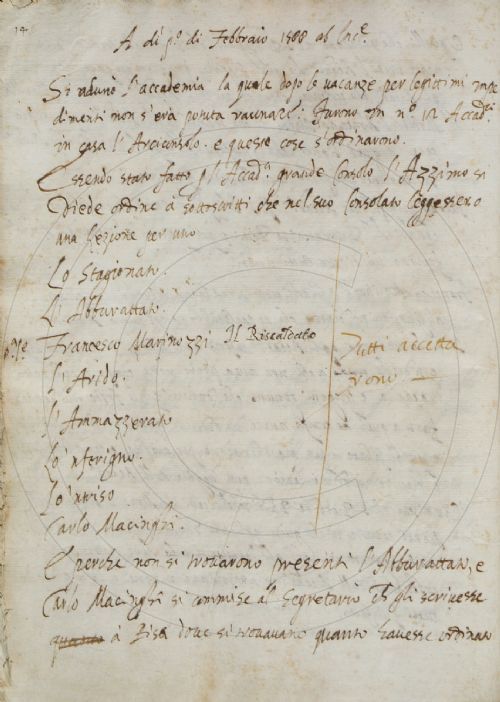 14
A dì p.º di Febbraio 1588 ab Inc.e
Si adunò l'accademia la quale dopo le vacanze per legittimi impe
dimenti non s'era potuta raunare: furono in n.º 12 Accad.i
in casa l'Arciconsolo e queste cose s'ordinarono.
Essendo stato fatto p l'Accad.a grande Consolo l'Azzimo si
Diede ordine à sottoscritti che nel suo Consolato leggessero
una lezione per uno
Lo Stagionato.
L'Abburattato.
Francesco Marinozzi Il Riscaldato
Tutti accetta
rono
l'Arido.
l'Ammazzerato
Lo 'nferigno.
Lo 'ntriso
Carlo Macinghi.
E perche non si trovarono presenti l'Abburattato, e
Carlo Macinghi si commise al Segretario ch gli scrivesse
à Pisa dove si trovavano quanto havesse ordinato